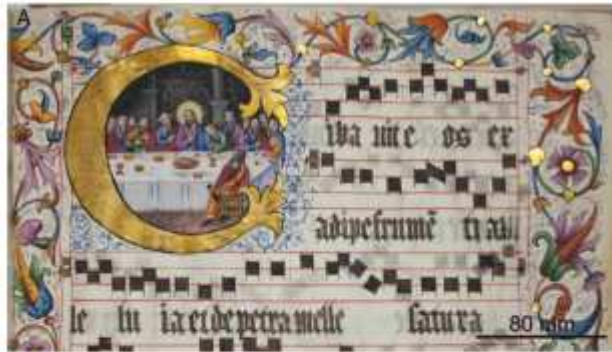 A
C
iba uit e os er
adipe frumē ti all
le lu ia et de petra melle satura
80 mm